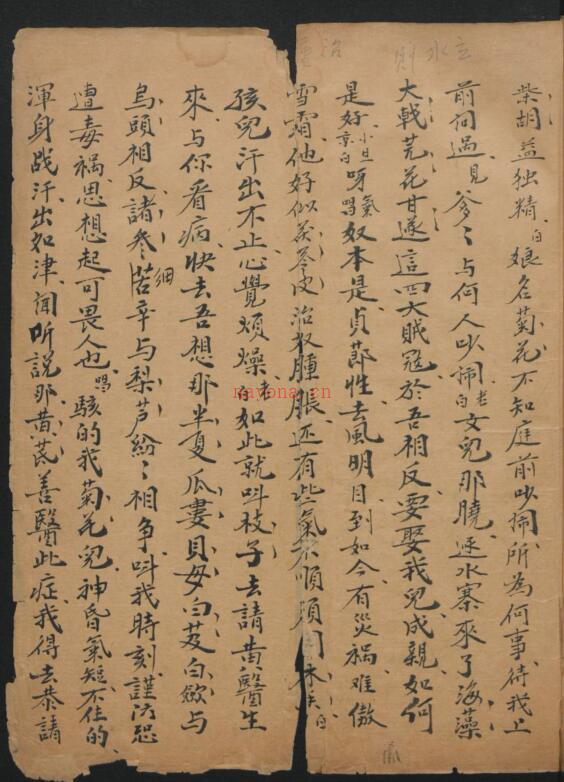 柴胡益独精白娘名菊花不知庭前吵闹所為何事待我上
前问过见爹〻与何人吵闹老白女兒那曉逆水寨來了海藻
大戟芫花甘遂這四大賊冦於吾相反要娶我兒成親如何
是好小旦京白呀氣唱奴本是貞莭性去風明目到如今有災禍难傲
雪霜他好似茯苓皮治奴腫脹还有些氣不順頭
孩兒汗出不止心覺煩燥老白如此就呌枝子去請黄醫生
來与你看病快去吾想那半夏瓜婁貝母白芨白斂与
烏頭相反諸參細苦辛与梨芦紛〻相争呌我時刻謹防恐
遭毒禍思想起可畏人也唱駭的我菊花兒神昏氣短不住的
渾身战汗出如津闻听說那黄芪善醫此症我得去恭請
立水則
nayona.cn